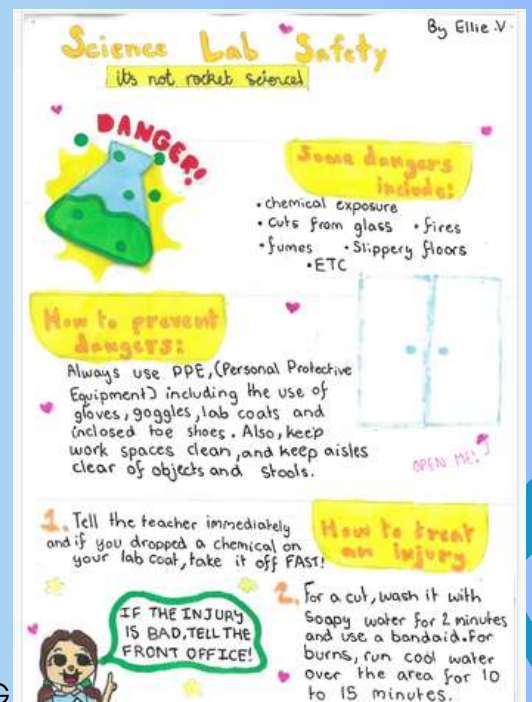 By Ellie.V.
Science Lab Safety
it's not rocket science!
DANGER!
Some dangers
include:
• chemical exposure
• cuts from glass • fires
• fumes • Slippery floors
• ETC
How to prevent
dangers:
Always use PPE, (Personal Protective
Equipment) including the use of
gloves, goggles, lab coats and
inclosed toe shoes. Also, keep
work spaces clean, and keep aisles
clear of objects and stools.
OPEN ME!
1. Tell the teacher immediately
and if you dropped a chemical on
your lab coat, take it off FAST!
How to treat
an injury
IF THE INJURY
IS BAD, TELL THE
FRONT OFFICE!
2. For a cut, wash it with
Soapy water for 2 minutes
and use a bandaid. For
burns, run cool water
over the area for 10
to 15 minutes.
G